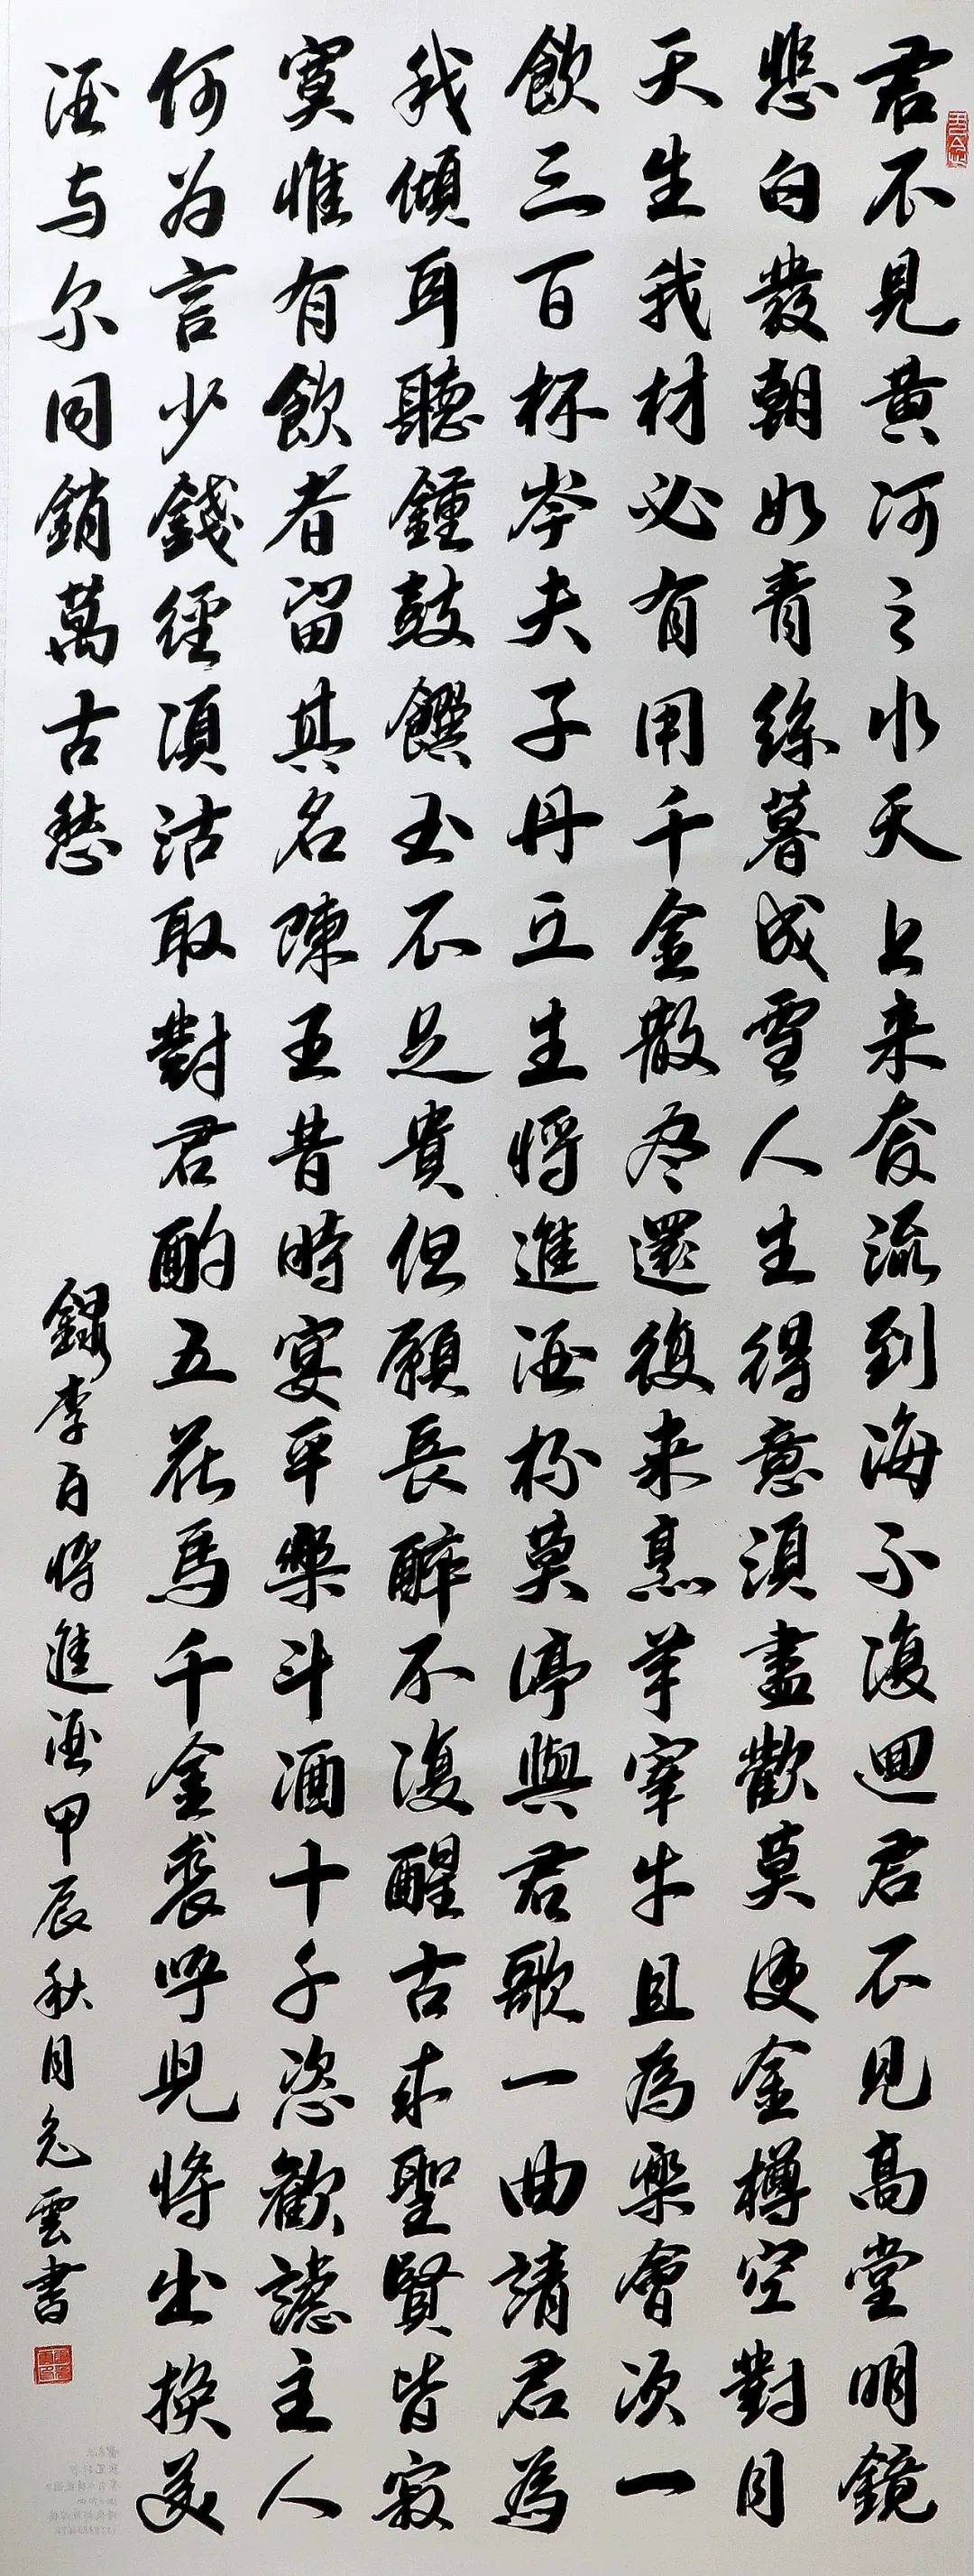 君不見黃河之水天上来奔流到海不復迴君不見高堂明鏡
悲白发朝如青絲暮成雪人生得意須盡歡莫使金樽空對月
天生我材必有用千金散尽還復来烹羊宰牛且為樂會須一
飲三百杯岑夫子丹丘生將進酒杯莫停與君歌一曲請君為
我傾耳聽鐘鼓饌玉不足貴但願長醉不復醒古来聖賢皆寂
寞惟有飲者留其名陳王昔時宴平樂斗酒十千恣歡謔主人
何为言少錢徑須沽取對君酌五花馬千金裘呼兒將出換美
酒与尔同銷萬古愁
錄李白將進酒甲辰秋月
雲書